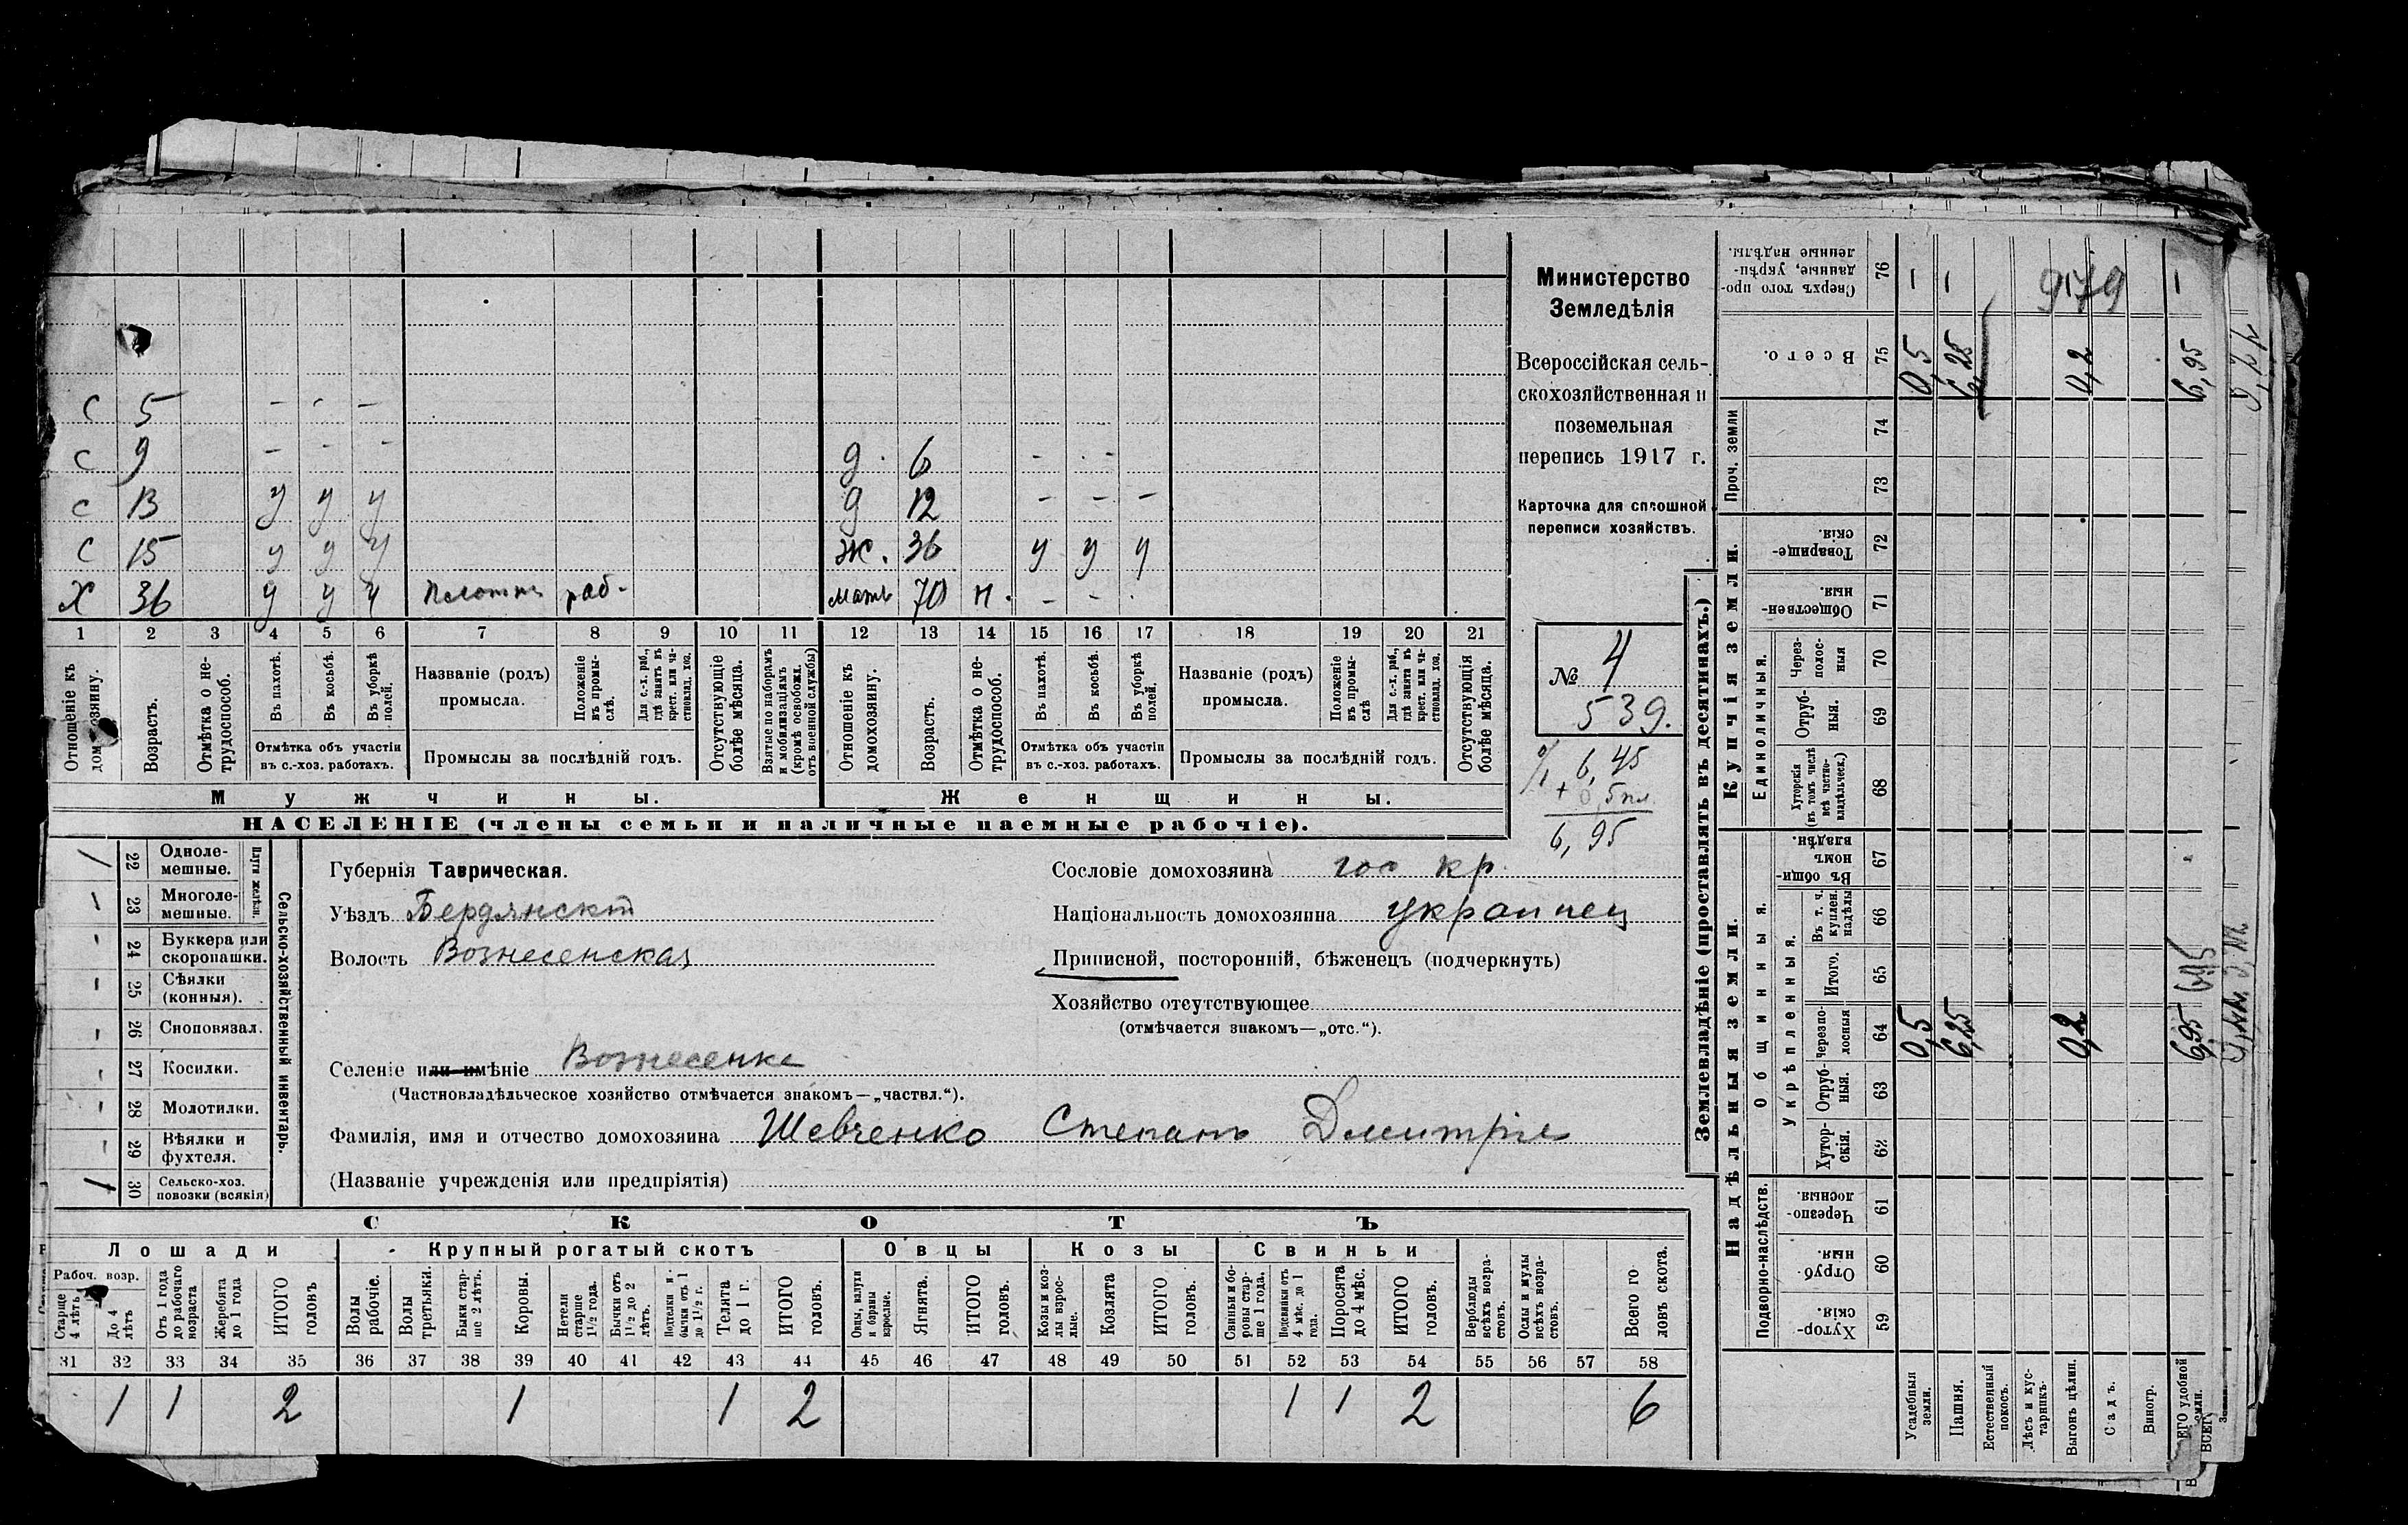 С 5 - - -
С 9 - - - д. 6 - - -
с 13 у у у д 12 - - -
С 15 у у у Ж. 36 у у у
Х 36 у у у плотник раб- мать 70 н. - -
1 2 3 4 5 6 7 8 9 10 11 12 13 14 15 16 17 18 19 20 21
Отношеніе къ домохозяину.
Возрастъ.
Отмѣтка о нетрудоспособ.
Въ пахотѣ.
Въ косьбѣ.
Въ уборкѣ полей.
Отмѣтка объ участіи въ с.-хоз. работахъ.
Названіе (родъ) промысла.
Положеніе въ промыслѣ.
Для с.-х. раб., гдѣ занятъ въ крест. или частновлад. хоз.
Промыслы за послѣдній годъ.
Отсутствующіе болѣе мѣсяца.
Взятые по наборамъ и мобилизаціямъ (кромѣ освобожд. отъ военной службы)
Отношеніе къ домохозяину.
Возрастъ.
Отмѣтка о нетрудоспособ.
Въ пахотѣ.
Въ косьбѣ.
Въ уборкѣ полей.
Отмѣтка объ участіи въ с.-хоз. работахъ.
Названіе (родъ) промысла.
Положеніе въ промыслѣ
Для с.-х. раб., гдѣ занята въ крест. или частновлад. хоз.
Промыслы за послѣдній годъ.
Отсутствующія болѣе мѣсяца.
Мужчины. Женщины.
НАСЕЛЕНІЕ (члены семьи и наличные наемные рабочіе).
Министерство
Земледѣлія
Всероссійская сель-
скохозяйственная и
поземельная
перепись 1917 г.
Карточка для сплошной
переписи хозяйствъ.
№ 4
539.
6,45
+ 0,5 пл.
6,95
Плуги желѣзн.
22 Одноле-мешные. /
23 Многоле-мешные. -
24 Буккера или скоропашки. -
25 Сѣялки (конныя). -
26 Сноповязал. -
27 Косилки. -
28 Молотилки. -
29 Вѣялки и фухтеля. -
30 Сельско-хоз. повозки (всякія) 1
Сельско-хозяйственный инвентарь.
Губернія Таврическая.
Уѣздъ Бердянскій
Волость Вознесенская
Сословіе домохозяина гос кр.
Національность домохозяина украинец
Приписной, посторонній, бѣженецъ (подчеркнуть)
Хозяйство отсутствующее
(отмѣчается знакомъ—„отс.“).
Селеніе или имѣніе Вознесенка
(Частновладѣльческое хозяйство отмѣчается знакомъ—„частвл.“).
Фамилія, имя и отчество домохозяина Шевченко Степанъ Дмитріев
(Названіе учрежденія или предпріятія)
СКОТЪ
Лошади Крупный рогатый скотъ Овцы Козы Свиньи
Рабоч. возр.
Старше 4 лѣтъ
До 4 лѣтъ
Отъ 1 года до рабочаго возраста
Жеребята до 1 года
ИТОГО головъ
Волы рабочіе.
Волы третьяки.
Быки старше 2 лѣтъ.
Коровы.
Нетели старше 1 1/2 года.
Бычки отъ 1 1/2 до 2 лѣтъ.
Подтелки и бычки отъ 1 до 1 1/2 г.
Телята до 1 г.
ИТОГО головъ.
Овцы, валухи и бараны взрослые.
Ягнята.
ИТОГО головъ.
Козы и козлы взрослые.
Козлята
ИТОГО головъ.
Свиньи и боровы старше 1 года.
Подсвинки отъ 4 мѣс. до 1 года.
Поросята до 4 мѣс.
ИТОГО головъ.
Верблюды всѣхъ возрастовъ.
Ослы и мулы всѣхъ возрастовъ.
Всего головъ скота.
31 32 33 34 35 36 37 38 39 40 41 42 43 44 45 46 47 48 49 50 51 52 53 54 55 56 57 58
1 1 2 1 1 2 1 1 2 6
Землевладѣніе (проставлять въ десятинахъ.)
Надѣльныя земли. Купчія земли.
Проч. земли
Подворно-наслѣдств.
Общинныя.
Укрѣпленныя.
Единоличныя.
Сверхъ того проданные, укрѣпленные надѣлы. 76 - - -
9179
Всего. 75 0,5 6,25 0,2 6,95
74
73
Товарищескія. 72
Общественныя. 71
Черезполосныя 70
Отрубныя. 69
Хуторскія (въ томъ числѣ всѣ частновладѣльческ.) 68
Въ общинномъ владѣн. 67
Въ т. ч. куплен. надѣлы 66
Итого. 65
Черезполосныя 64 0,5 6,25 0,2 6,95
Отрубныя. 63
Хуторскія. 62
Черезполосныя. 61
Отрубныя. 60
Хуторскія. 59
Усадебныя земли.
Пашня.
Естественный покосъ.
Лѣсъ и кустарникъ.
Выгонъ цѣлин.
Садъ.
Виногр.